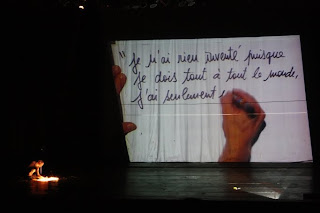 "je n'ai rien inventé puisque
je dois tout à tout le monde,
j'ai seulement